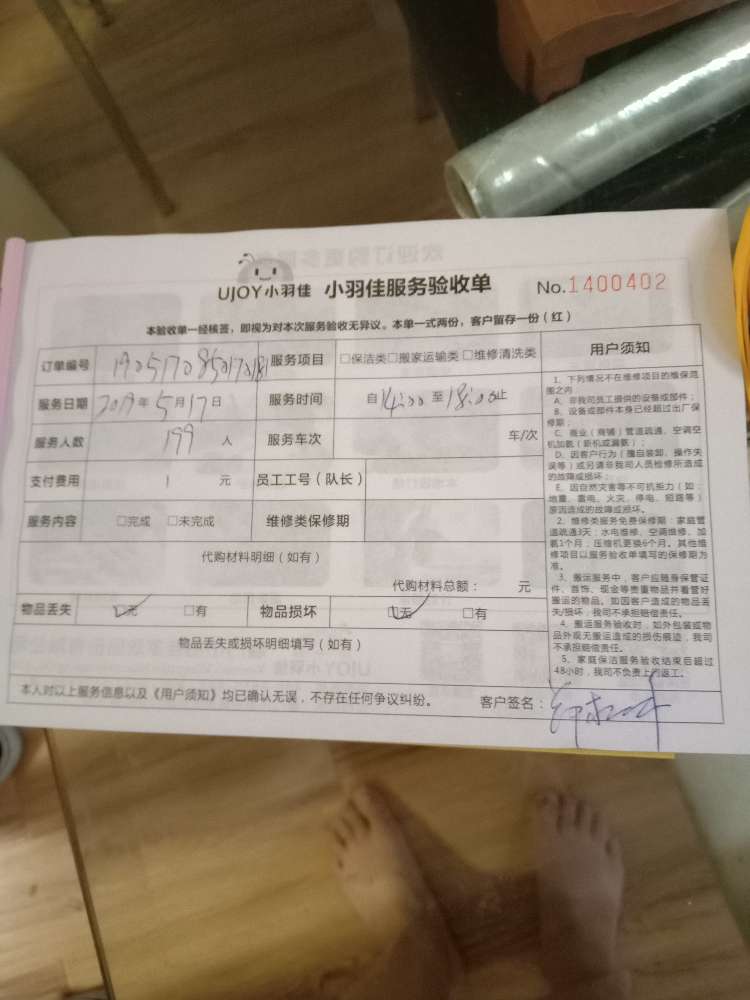 UJOY小羽佳 小羽佳服务验收单 No.1400402
本验收单一经核签，即视为对本次服务验收无异议。本单一式两份，客户留存一份（红）
订单编号 服务项目 □保洁类□搬家运输类□维修清洗类
服务日期 2019年5月17日 服务时间 自14:00至18:00止
服务人数 199 人 服务车次 车/次
支付费用 1 元 员工工号（队长）
服务内容 □完成 □未完成 维修类保修期
代购材料明细（如有）
代购材料总额： 元
物品丢失 □无 □有 物品损坏 □无 □有
物品丢失或损坏明细填写（如有）
本人对以上服务信息以及《用户须知》均已确认无误，不存在任何争议纠纷。 客户签名：
用户须知
1、下列情况不在维修项目的维保范
围之内：
A、非我司员工提供的设备或部件；
B、设备或部件本身已经超过出厂保
修期；
C、商业（商铺）管道疏通、空调空
机加氨（新机或漏氨）；
D、因客户行为（擅自装卸、操作失
误等）或另请非我司人员检修所造成
的故障或损坏；
E、因自然灾害等不可抗拒力（如：
地震、雷电、火灾、停电、短路等）
原因造成的故障或损坏。
2、维修类服务免费保修期：家庭管
道疏通3天；水电维修、空调维修、加
氨1个月；压缩机更换6个月。其他维
修项目以服务验收单填写的保修期为
准。
3、搬运服务中，客户应随身保管证
件、首饰、现金等贵重物品并看管好
搬运的物品。如因客户造成的物品丢
失/损坏，我司不承担赔偿责任。
4、搬运服务验收时，如外包装或物
品外观无搬运造成的损伤痕迹，我司
不承担赔偿责任。
5、家庭保洁服务验收结束后超过
48小时，我司不负责上门返工。